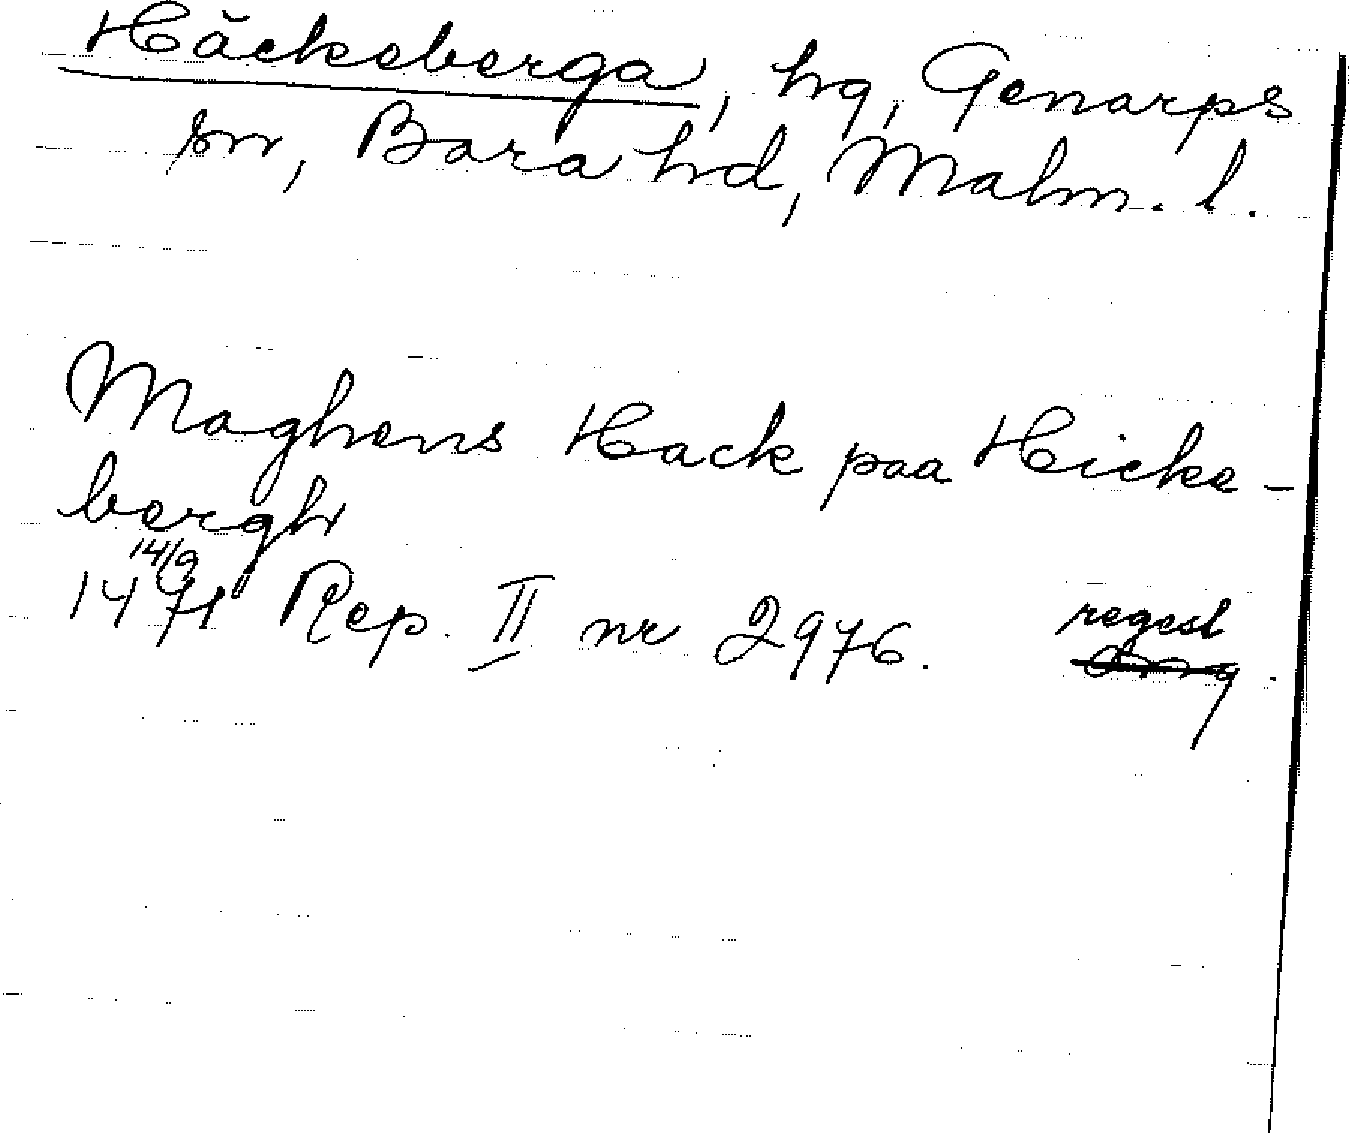 Häckeberga, hg, Genarps
sn, Bara hd, Malm. l.
Maghens Hack paa Hicke-
bergh
14/9
1471 Rep. II nr 2976.
regest